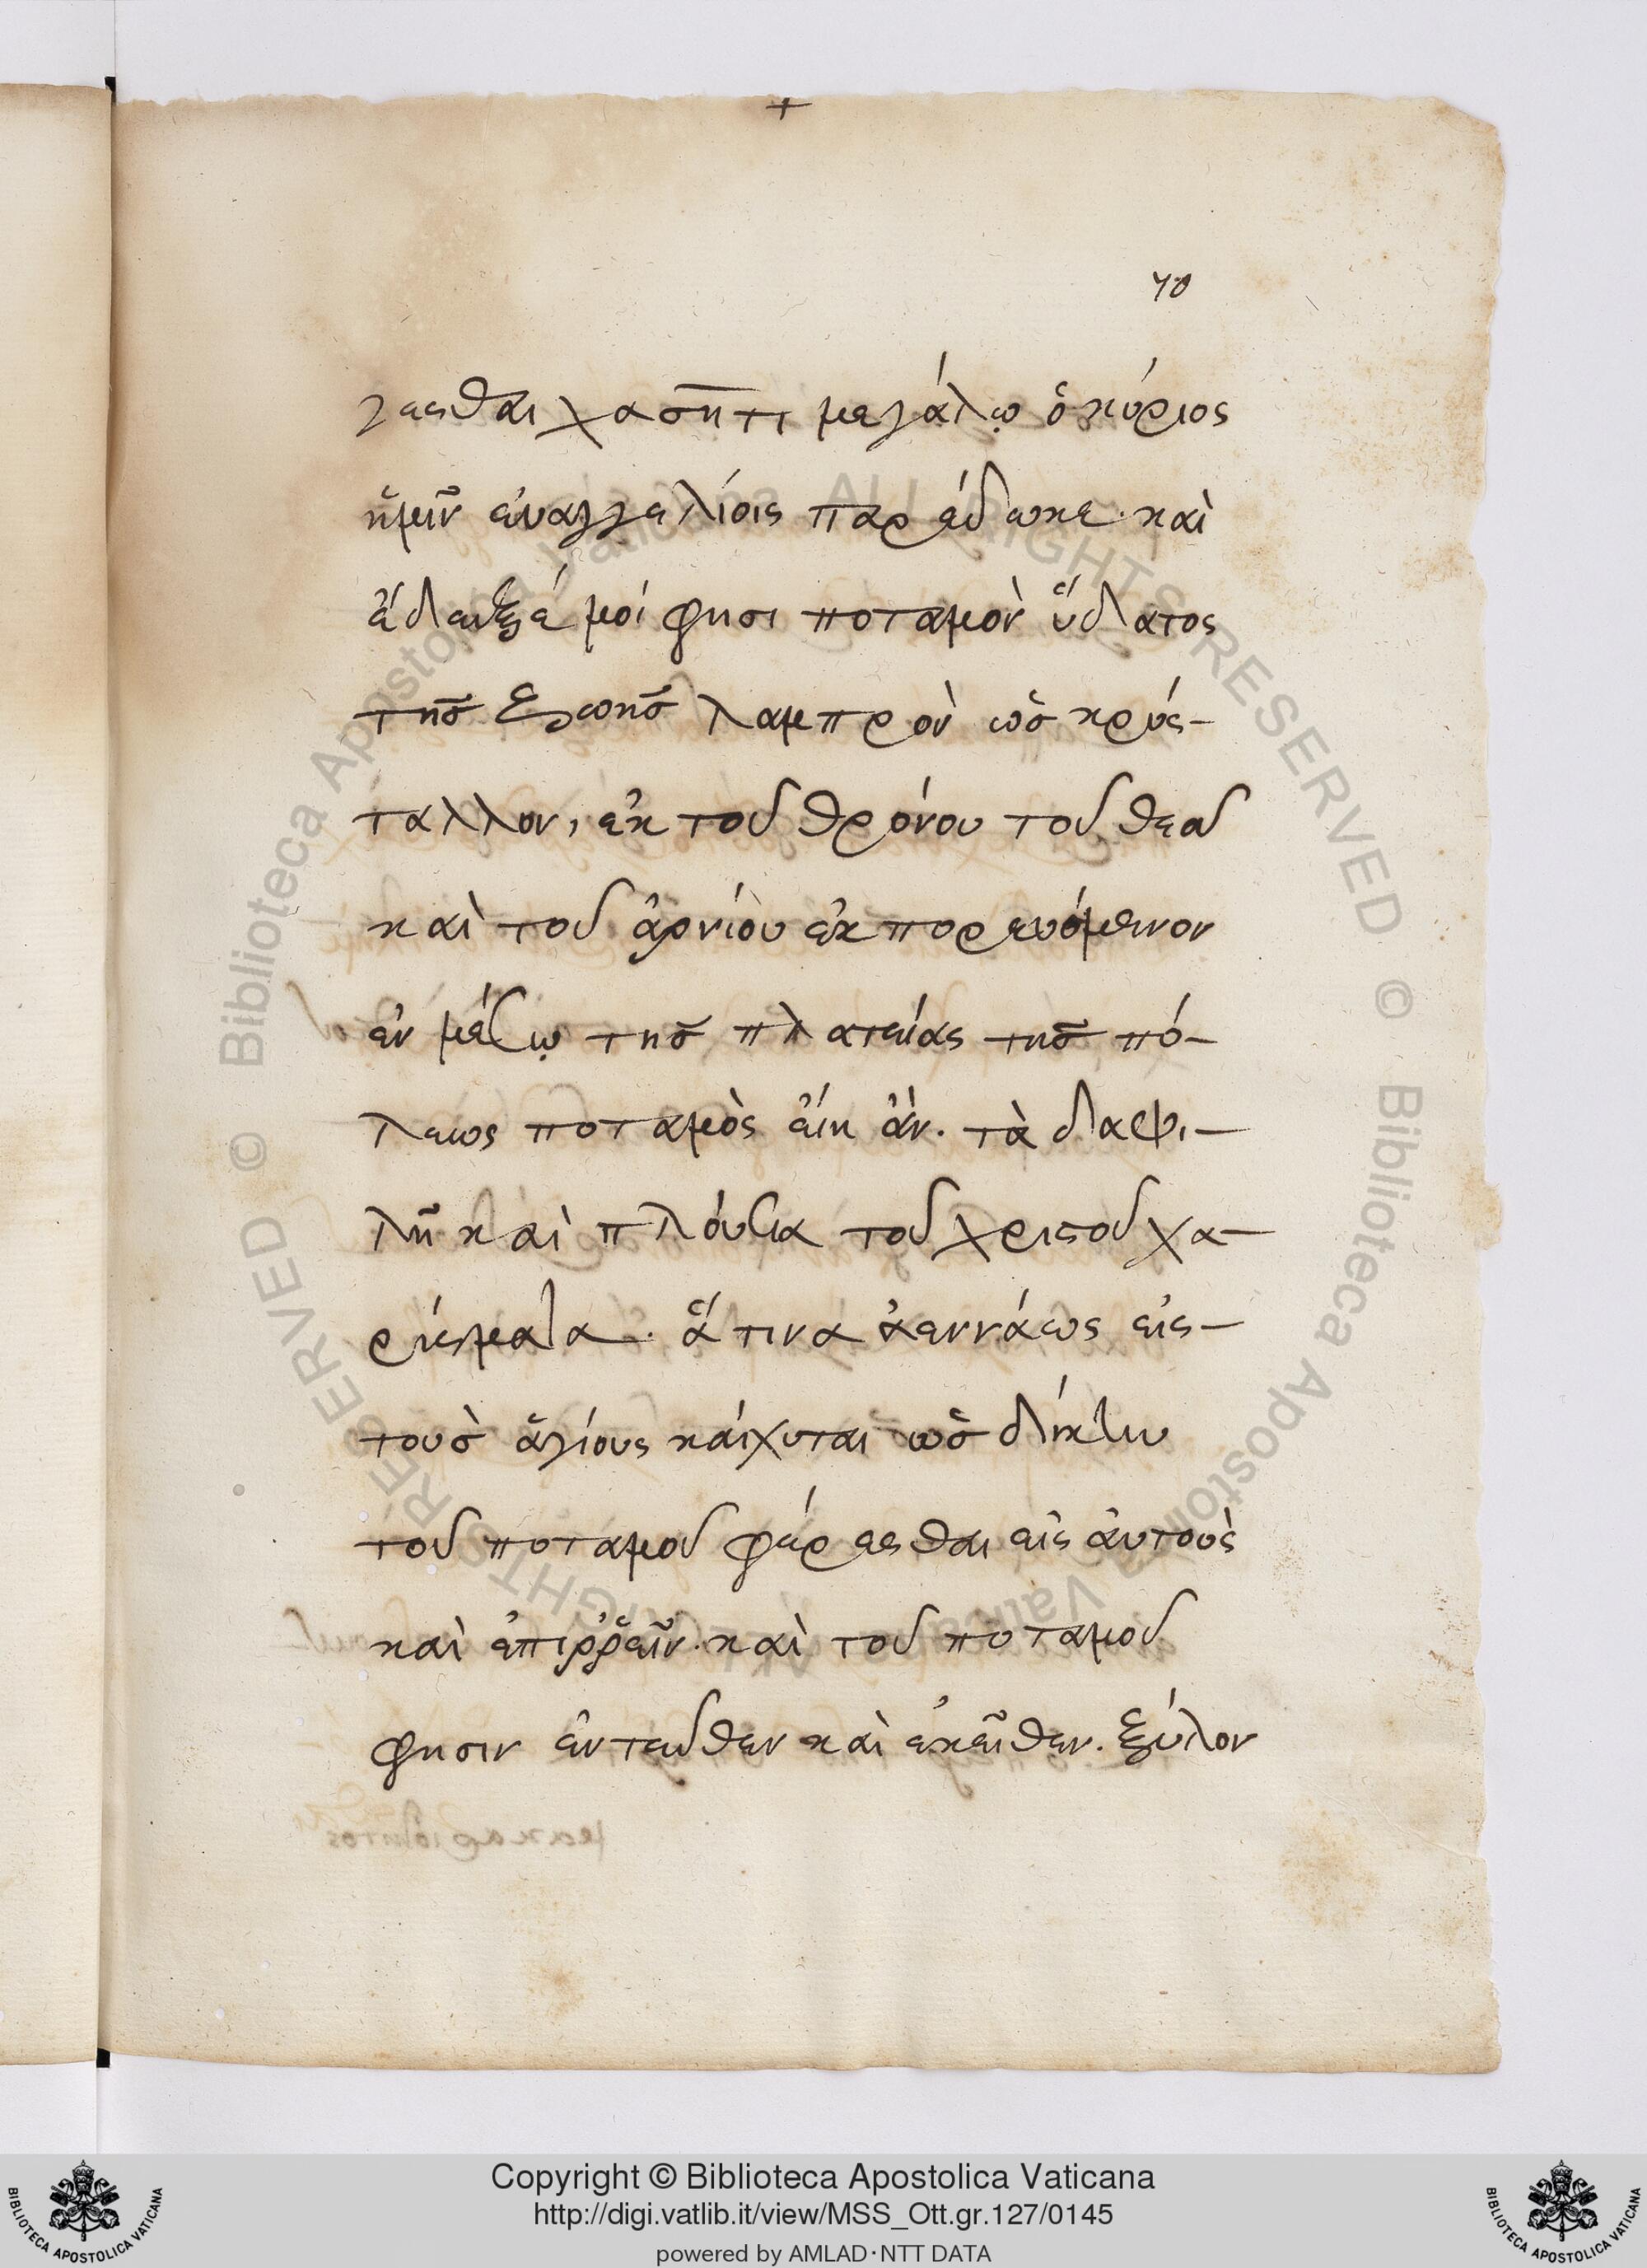 70
γεσθαι χάσματι μεγάλῳ ὁ κύριος
ἡμῖν εὐαγγελίοις παρέδωκε· καὶ
ἔδειξέ μοί φησι ποταμὸν ὕδατος
τῆς ζωῆς λαμπρὸν ὡς κρύσ-
ταλλον, ἐκ τοῦ θρόνου τοῦ θεοῦ
καὶ τοῦ ἀρνίου ἐκπορευόμενον
ἐν μέσῳ τῆς πλατείας τῆς πό-
λεως ποταμὸς εἴη ἂν. τὰ δαψι-
λῆ καὶ πλούσια τοῦ χριστοῦ χα-
ρίσματα. ἅ τινα ἀεννάως εἰς
τοὺς ἁγίους ὡς
τοῦ ποταμοῦ φέρεσθαι εἰς αὐτοὺς
καὶ ἐπιῤῥεῖν. καὶ τοῦ ποταμοῦ
φησιν ἐντεῦθεν καὶ ἐκεῖθεν. ξύλον
Copyright © Biblioteca Apostolica Vaticana
http://digi.vatlib.it/view/MSS_Ott.gr.127/0145
powered by AMLAD·NTT DATA
BIBLIOTECA APOSTOLICA VATICANA
BIBLIOTECA APOSTOLICA VATICANA
© Biblioteca Apostolica Vaticana ALL RIGHTS RESERVED © Biblioteca Apostolica Vaticana ALL RIGHTS RESERVED